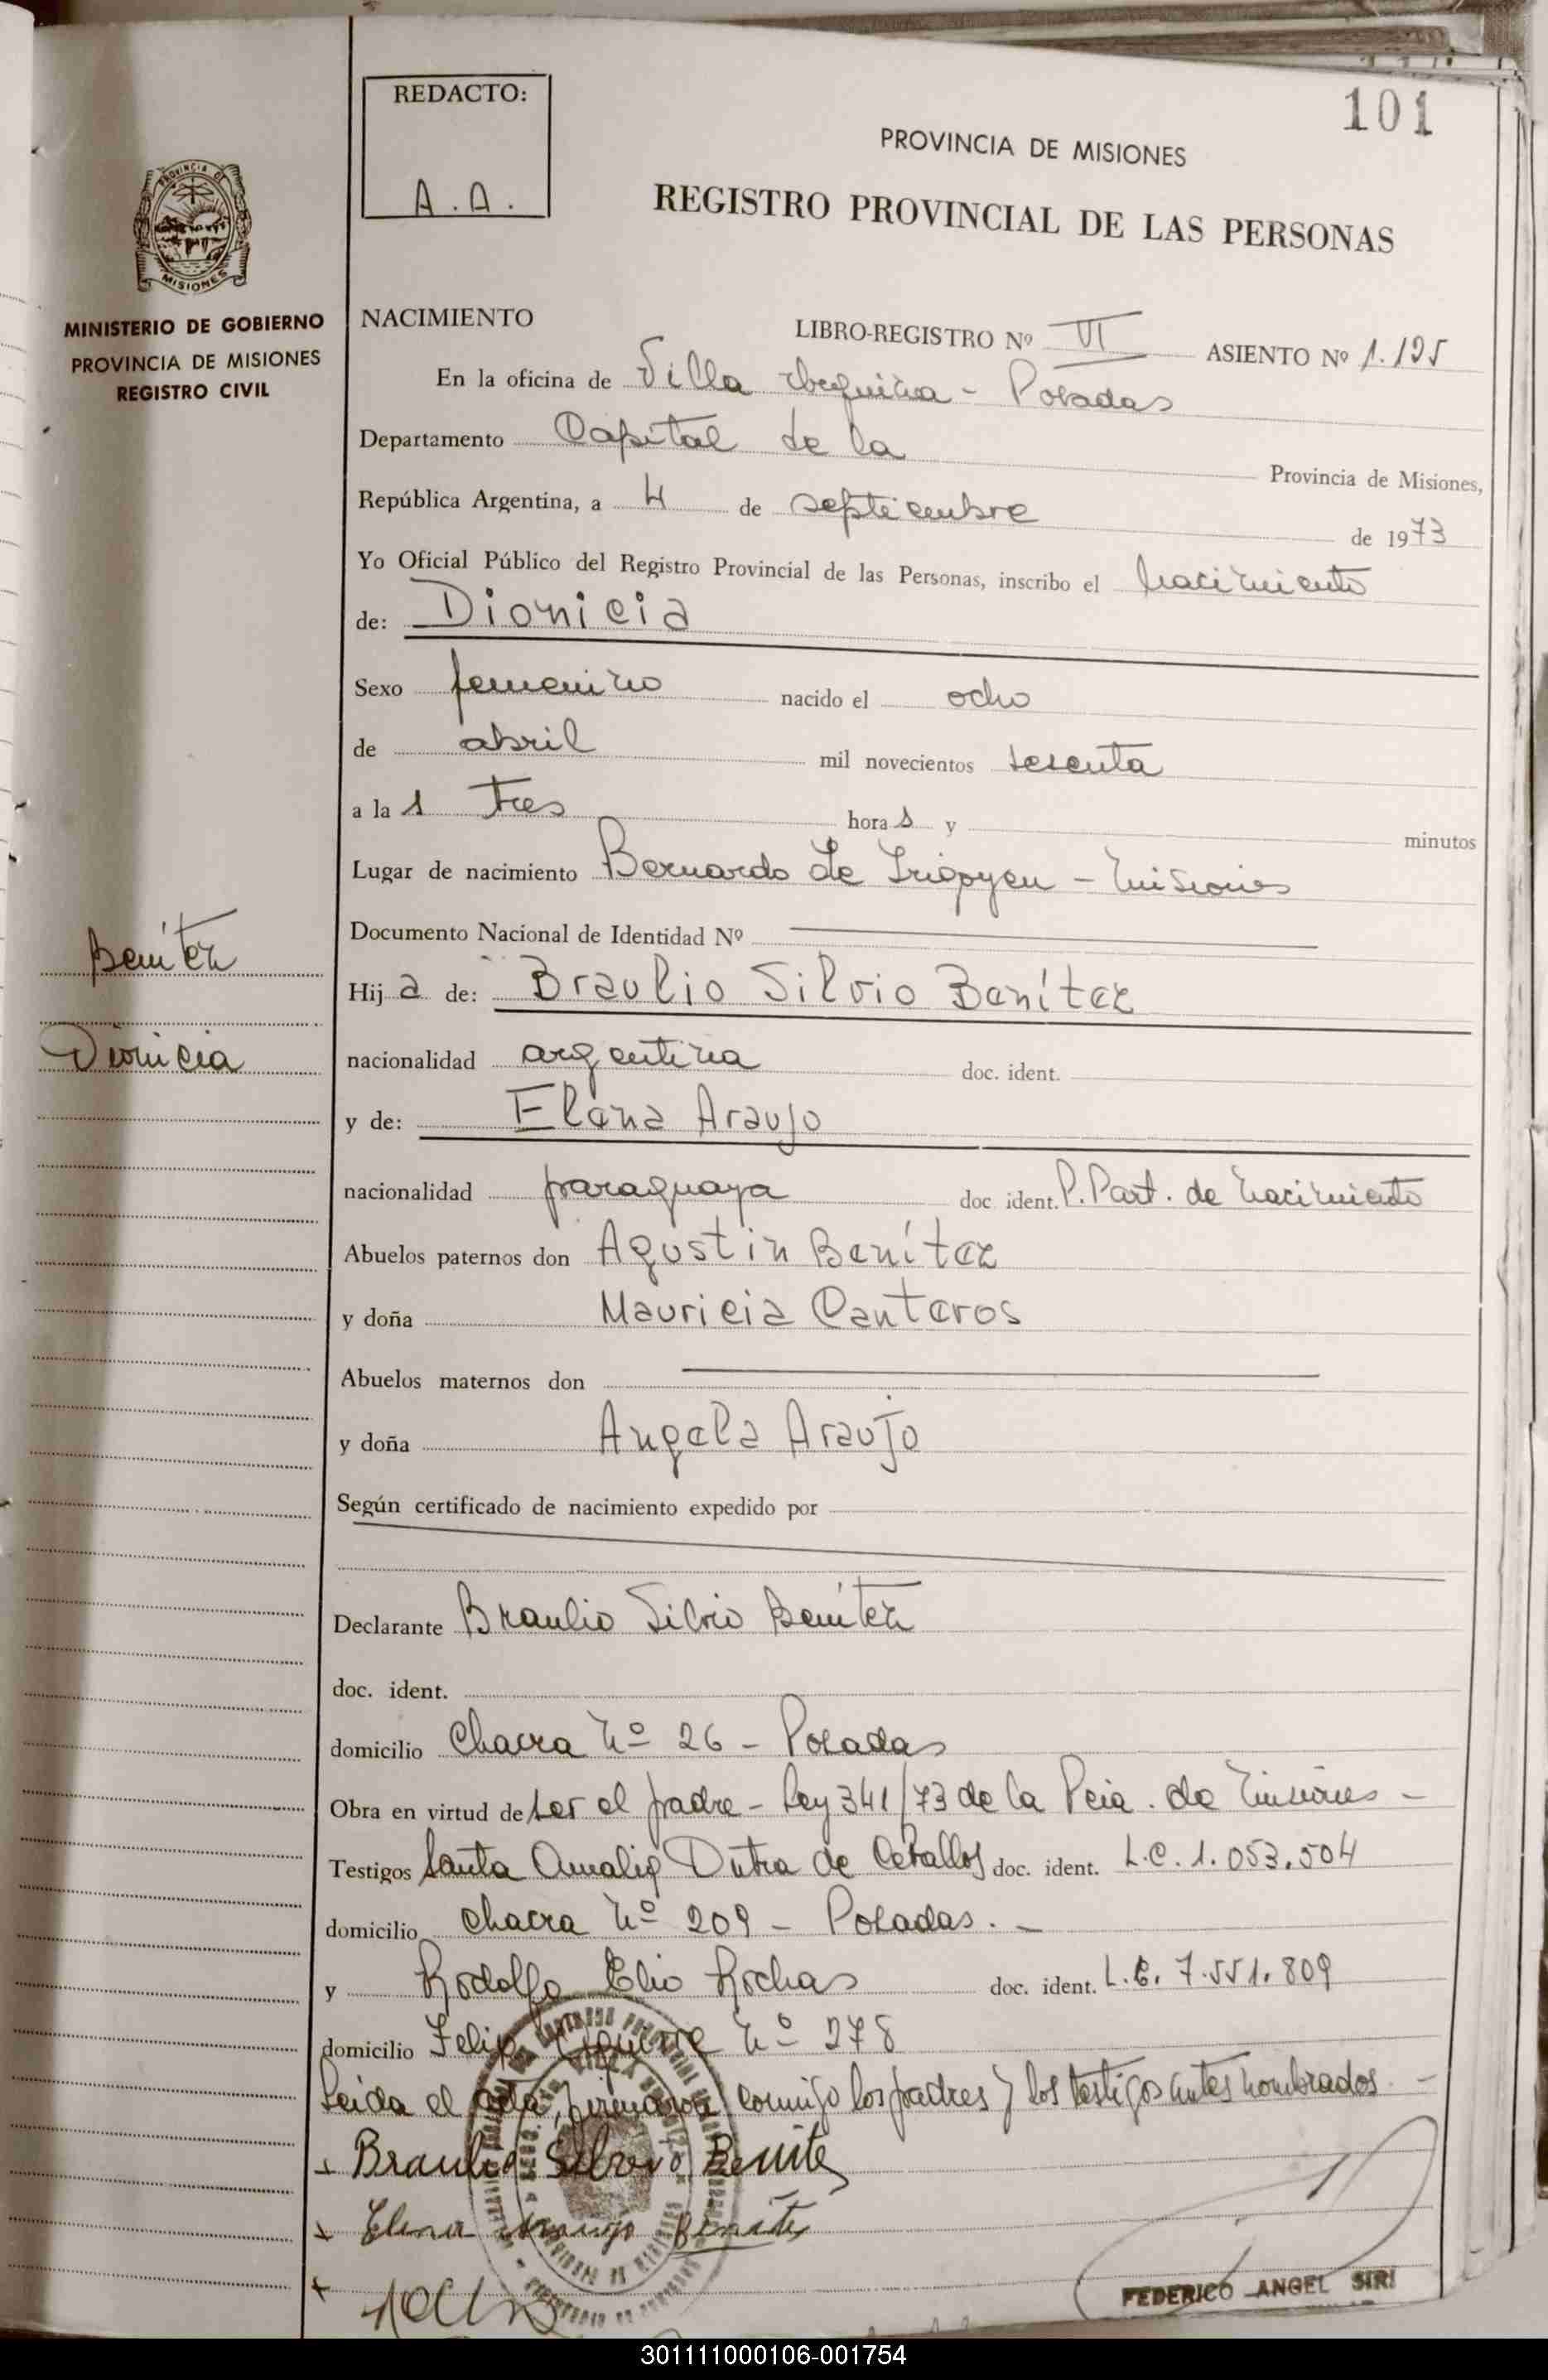 101
REDACTO:
A.A.
PROVINCIA DE MISIONES
REGISTRO PROVINCIAL DE LAS PERSONAS
PROVINCIA DE
MISIONES
MINISTERIO DE GOBIERNO
PROVINCIA DE MISIONES
REGISTRO CIVIL
NACIMIENTO
LIBRO-REGISTRO Nº VI ASIENTO Nº 1.125
En la oficina de Villa Urquiza - Posadas
Departamento Capital de la Provincia de Misiones,
República Argentina, a 4 de septiembre de 1973
Yo Oficial Público del Registro Provincial de las Personas, inscribo el nacimiento
de: Dionicia
Sexo femenino nacido el ocho
de abril mil novecientos sesenta
a la s tres hora s y minutos
Lugar de nacimiento Bernardo de Irigoyen - Misiones
Documento Nacional de Identidad Nº
Benítez
Hij a de: Braulio Silvio Benítez
Dionicia
nacionalidad argentina doc. ident.
y de: Elena Araujo
nacionalidad paraguaya doc ident. P. Part. de nacimiento
Abuelos paternos don Agustin Benítez
y doña Mauricia Canteros
Abuelos maternos don
y doña Angela Araujo
Según certificado de nacimiento expedido por
Declarante Braulio Silvio Benítez
doc. ident.
domicilio Chacra Nº 26 - Posadas
Obra en virtud de ser el padre - Ley 341/73 de la Pcia. de Misiones -
Testigos Santa Amalia Dutra de Ceballos doc. ident. L.C. 1.053.504
domicilio Chacra Nº 209 - Posadas. -
y Rodolfo Elio Rochas doc. ident. L.E. 7.551.809
domicilio Felix Aguirre Nº 278
Leida el acta, firmaron conmigo los padres y los testigos antes nombrados. -
Braulio Silvio Benite
Elena Araujo Benitez
FEDERICO ANGEL SIRI
301111000106-001754